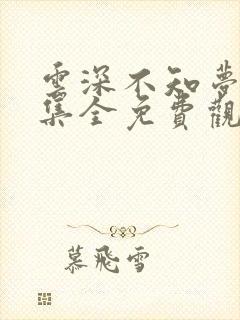 雲深不知夢
集全免費觀
慕飛雪